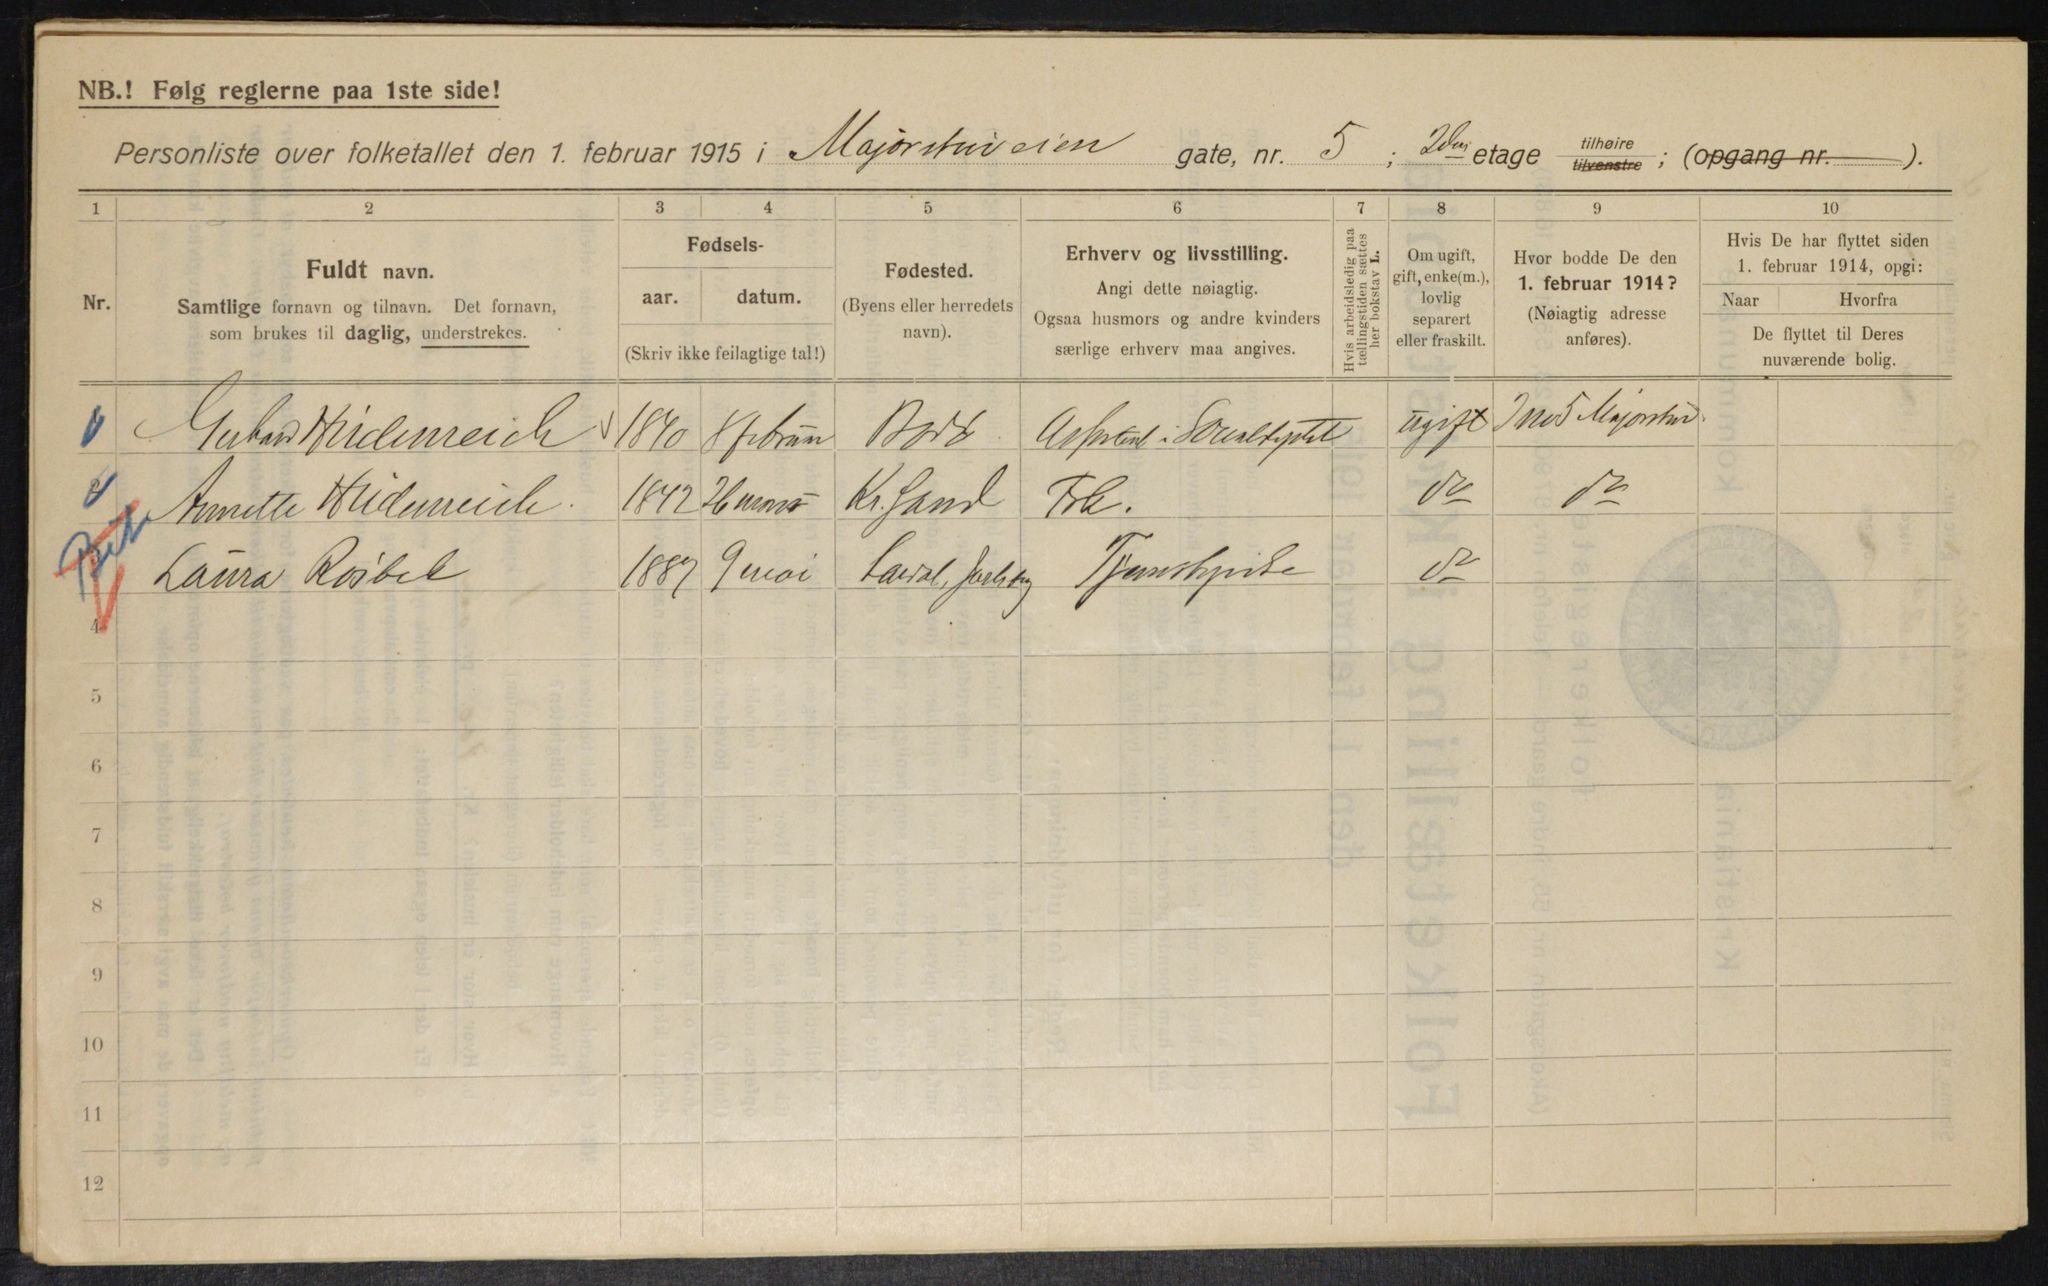 NB.! Følg reglerne paa 1ste side!
Personliste over folketallet den 1. februar 1915 i Majorstuveien gate, nr. 5 ; 2den etage tilhøire tilvenstre ; (opgang nr. ).
1 2 3 4 5 6 7 8 9 10
Nr.
Fuldt navn.
Samtlige fornavn og tilnavn. Det fornavn,
som brukes til daglig, understrekes.
Fødsels-
aar. datum.
(Skriv ikke feilagtige tal!)
Fødested.
(Byens eller herredets
navn).
Erhverv og livsstilling.
Angi dette nøiagtig.
Ogsaa husmors og andre kvinders
særlige erhverv maa angives.
Hvis arbeidsledig paa
tællingstiden sættes
her bokstav L.
Om ugift,
gift, enke(m.),
lovlig
separert
eller fraskilt.
Hvor bodde De den
1. februar 1914?
(Nøiagtig adresse
anføres).
Hvis De har flyttet siden
1. februar 1914, opgi:
Naar Hvorfra
De flyttet til Deres
nuværende bolig.
Gerhard Heidenreich 1840 8 februar Bodø ugift No 5 Majorstuv.
Annette Heidenreich. 1842 26 Kr. Sand Frk. do do
Laura Roibek 1887 9 mai Lardal, Jarlsberg do
4
5
6
7
8
9
10
11
12